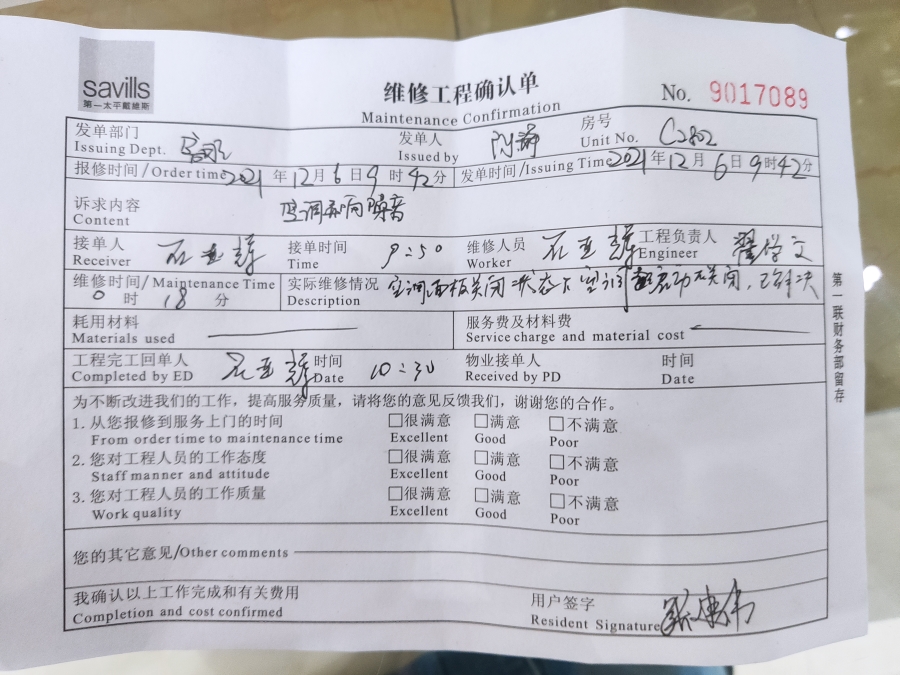 savills
第一太平戴维斯
维修工程确认单
Maintenance Confirmation
No. 9017089
发单部门
Issuing Dept. 客服
发单人
Issued by
房号
Unit No. C2802
报修时间/Order time 2021年12月6日9时42分
发单时间/Issuing Time 2021年12月6日9时42分
诉求内容
Content
空调有响噪音
接单人
Receiver 石亚辉
接单时间
Time 9:50
维修人员
Worker 石亚辉
工程负责人
Engineer 翟学文
维修时间/Maintenance Time
0时18分
实际维修情况
Description
空调面板关闭状态下空调 启动 关闭,已解决
耗用材料
Materials used
服务费及材料费
Service charge and material cost
工程完工回单人
Completed by ED 石亚辉
时间
Date 10:30
物业接单人
Received by PD
时间
Date
为不断改进我们的工作,提高服务质量,请将您的意见反馈我们,谢谢您的合作。
1. 从您报修到服务上门的时间 □很满意 □满意 □不满意
From order time to maintenance time Excellent Good Poor
2. 您对工程人员的工作态度 □很满意 □满意 □不满意
Staff manner and attitude Excellent Good Poor
3. 您对工程人员的工作质量 □很满意 □满意 □不满意
Work quality Excellent Good Poor
您的其它意见/Other comments
我确认以上工作完成和有关费用
Completion and cost confirmed
用户签字
Resident Signature
第一联财务部留存